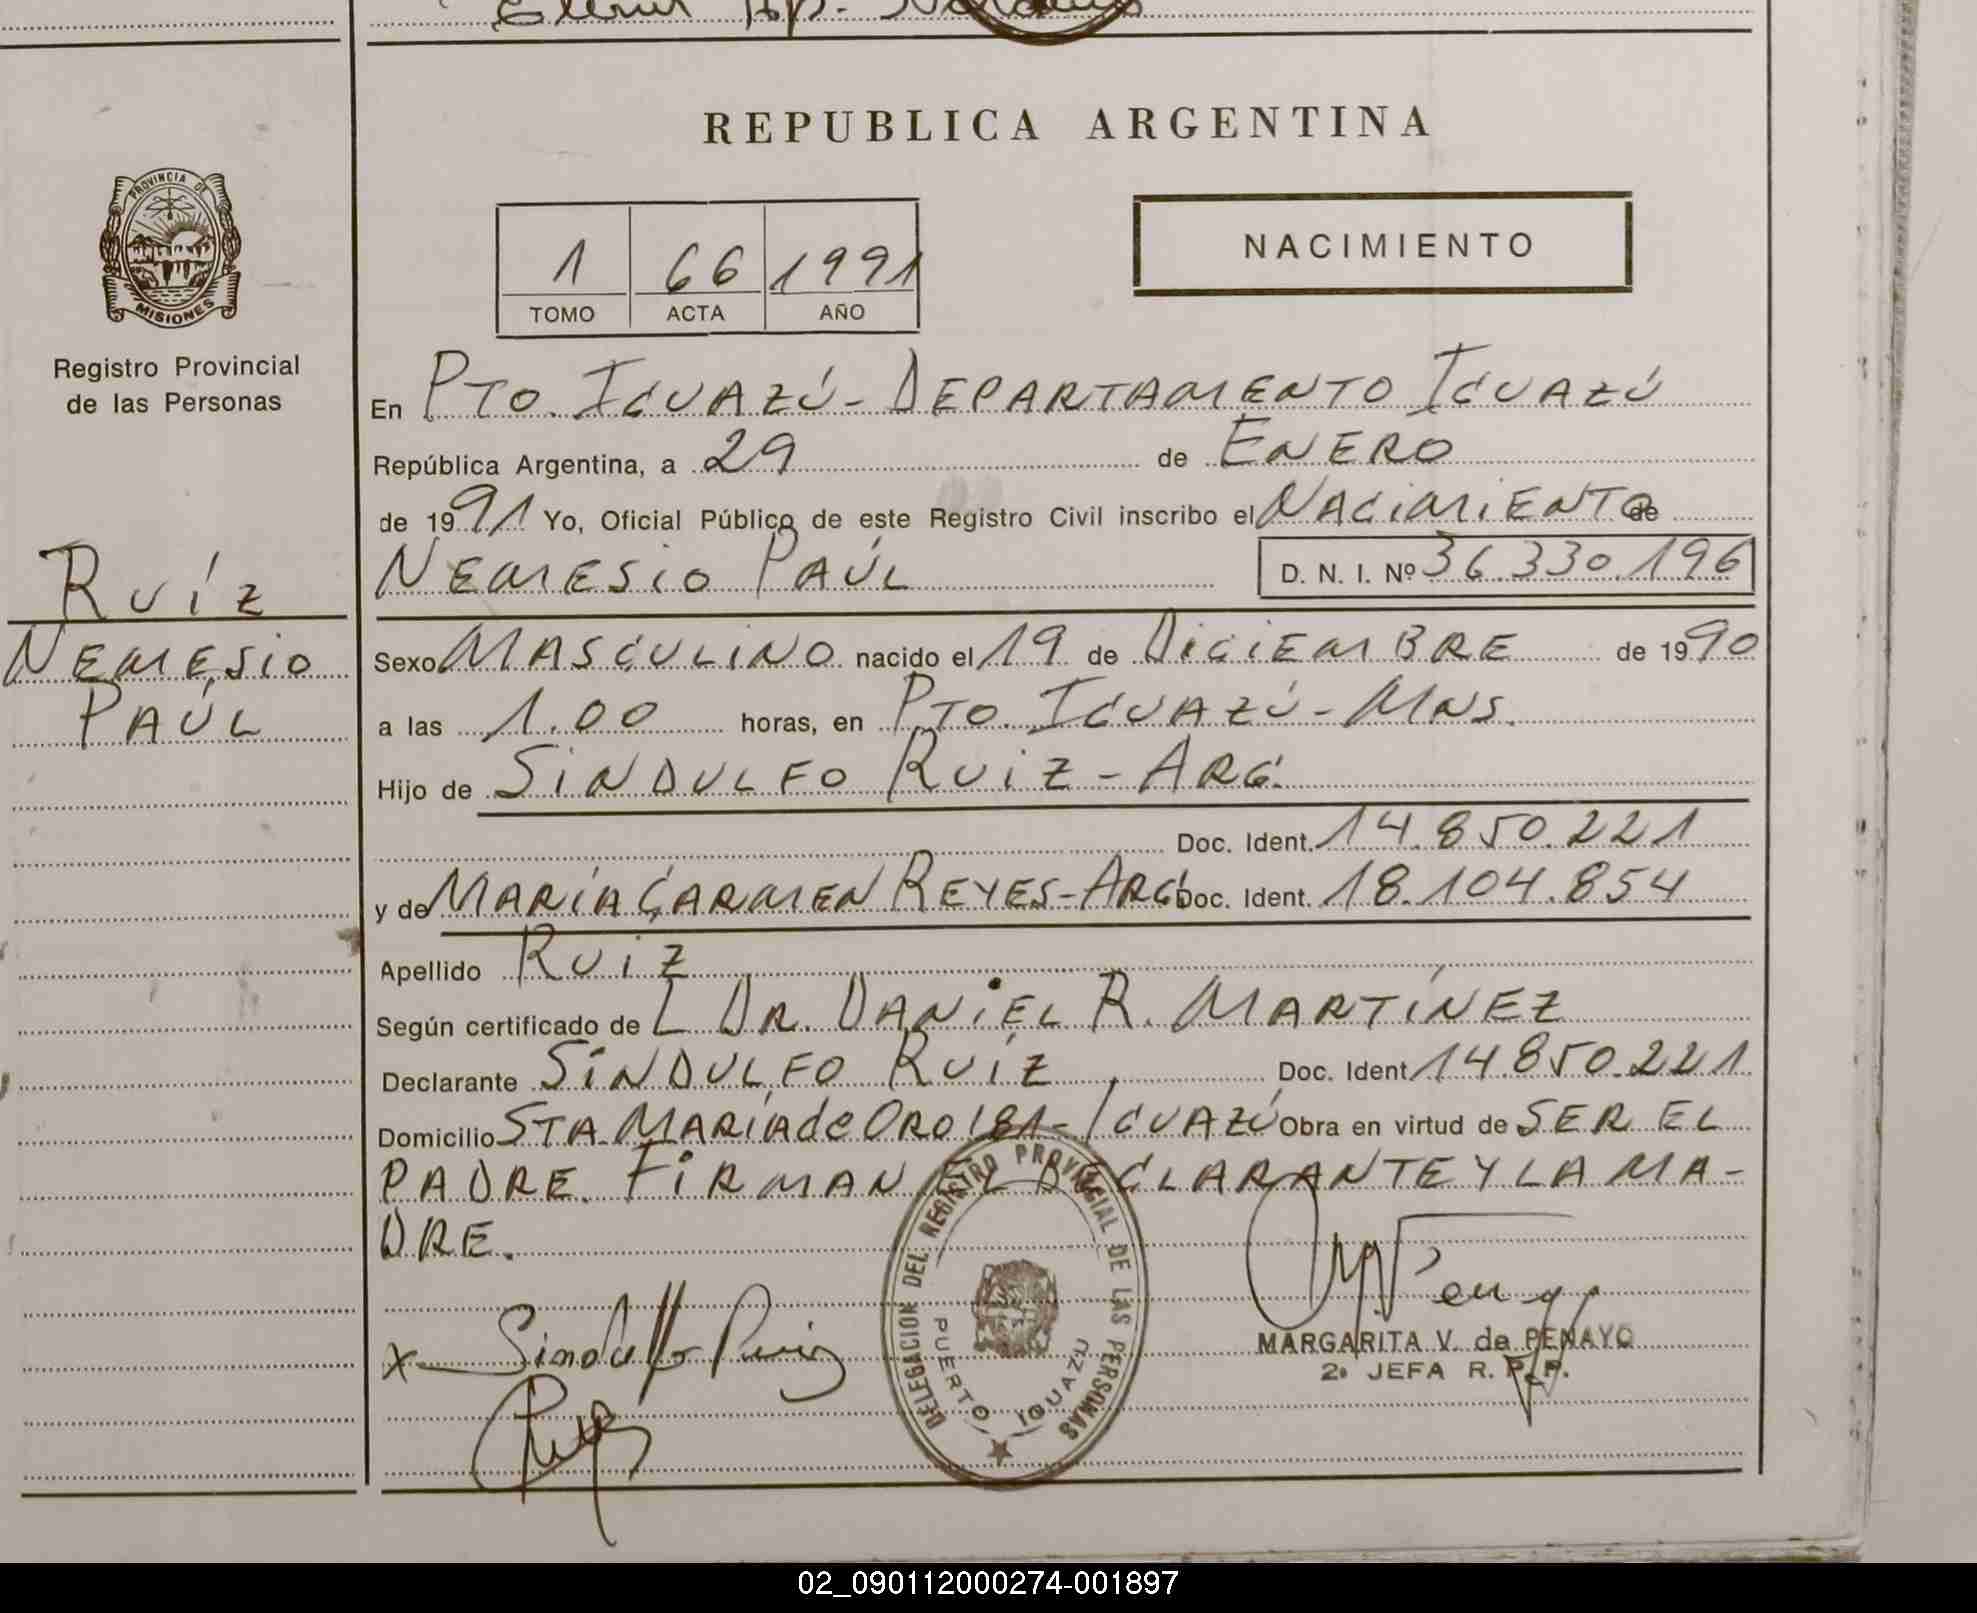 REPUBLICA ARGENTINA
PROVINCIA DE
MISIONES
Registro Provincial
de las Personas
1 66 1991
TOMO ACTA AÑO
NACIMIENTO
En PTO. IGUAZÚ - DEPARTAMENTO IGUAZÚ
República Argentina, a 29 de ENERO
de 1991 Yo, Oficial Público de este Registro Civil inscribo el NACIMIENTO de
NEMESIO PAÚL D. N. I. Nº 36.330.196
RUÍZ
NEMESIO
PAÚL
Sexo MASCULINO nacido el 19 de DICIEMBRE de 1990
a las 1.00 horas, en PTO. IGUAZÚ - MNS.
Hijo de SINDULFO RUIZ - ARG.
Doc. Ident. 14.850.221
y de MARÍA CARMEN REYES - ARG. Doc. Ident. 18.104.854
Apellido RUIZ
Según certificado de L DR. DANIEL R. MARTÍNEZ
Declarante SINDULFO RUÍZ Doc. Ident 14.850.221
Domicilio STA MARÍA de ORO 181 - IGUAZÚ Obra en virtud de SER EL
PADRE. FIRMAN EL DECLARANTE Y LA MA-
DRE.
x Sindulfo Ruiz
DELEGACION DEL REGISTRO PROVINCIAL DE LAS PERSONAS
PUERTO IGUAZU
MARGARITA V. de PENAYO
2ª JEFA R. P. P.
02_090112000274-001897